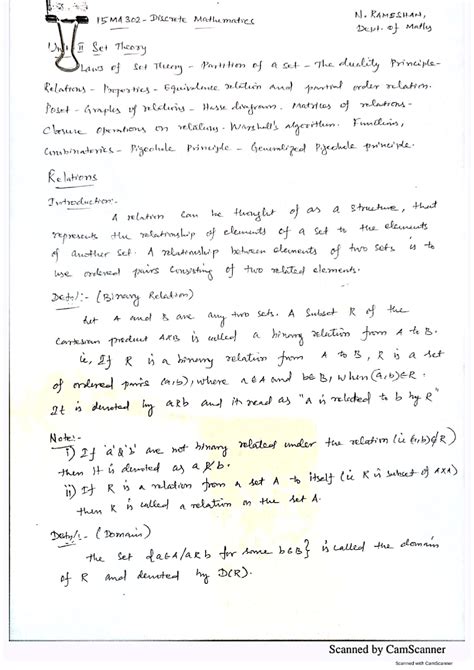 15MA302 - Discrete Mathematics
N. RAMESHAN,
Dept. of Maths
Unit II Set Theory
Laws of Set Theory - Partition of a set - The duality Principle -
Relations - Properties - Equivalence relation and partial order relation.
Poset - Graphs of relations - Hasse diagram. Matrices of relations -
Closure Operations on relations - Warshall's algorithm. Functions,
Combinatorics - Pigeohole Principle - Generalized Pigeohole principle.
Relations
Introduction:-
A relation can be thought of as a structure, that
represents the relationship of elements of a set to the elements
of another set. A relationship between elements of two sets is to
use ordered pairs consisting of two related elements.
Defn/:- (Binary Relation)
Let A and B are any two sets. A subset R of the
Cartesian product AXB is called a binary relation from A to B.
ie, If R is a binary relation from A to B, R is a set
of ordered pairs (a,b), where a∈A and b∈B, when (a,b)∈R.
It is denoted by aRb and it read as "a is related to b by R"
Note:-
i) If 'a' & 'b' are not binary related under the relation (ie (a,b)∉R)
then it is denoted as a R̸ b.
ii) If R is a relation from a set A to itself (ie R is subset of AXA)
then R is called a relation on the set A.
Defn/:- (Domain)
The set {a∈A/aRb for some b∈B} is called the domain
of R and denoted by D(R).
Scanned by CamScanner
Scanned with CamScanner